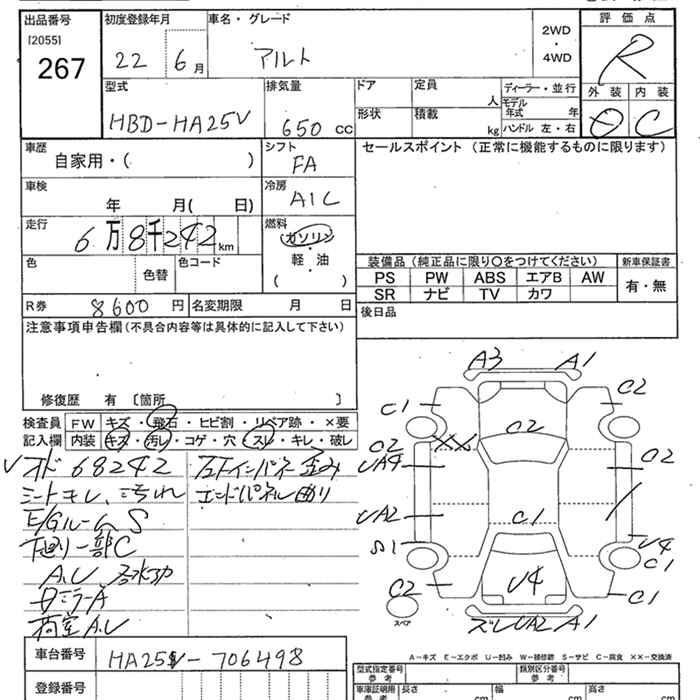 出品番号 初度登録年月 車名・グレード 2WD・4WD 評価点
[2055]
267 22 6月 アルト R
型式 排気量 ドア 定員 人 ディーラー・並行 外装 内装
モデル年式 年
HBD-HA25V 650cc 形状 積載 kg ハンドル 左・右 D C
車歴 シフト セールスポイント (正常に機能するものに限ります)
自家用・( ) FA
車検 冷房
年 月( 日) A/C
走行 燃料
6万8千242km ガソリン・軽・油
( )
色 色替 色コード
装備品 (純正品に限り○をつけてください) 新車保証書
PS PW ABS エアB AW 有・無
SR ナビ TV カワ
R券 8600円 名変期限 月 日 後日品
注意事項申告欄 (不具合内容等は具体的に記入して下さい)
修復歴 有 〔箇所 〕
検査員記入欄 FW キズ・飛石・ヒビ割・リペア跡・×要
内装 キズ・汚レ・コゲ・穴・スレ・キレ・破レ
オド 68242
シートキレ、汚れ
E/GルームS
下廻り一部C
左Fインパネ歪み
エンドパネル曲り
A3 A1
C1 C2
C2 XX C2 C2
UA4
UA2 C1
S1 U4 C1
C2 U4 C1
スペア
ズレ UA2 A1
A-キズ E-エクボ U-凹み W-補修跡 S-サビ C-腐食 ××-交換済
車台番号 HA25V-706498
登録番号
型式指定番号 参考 類別区分番号 参考
車庫証明用 参考 長さ cm 幅 cm 高さ cm